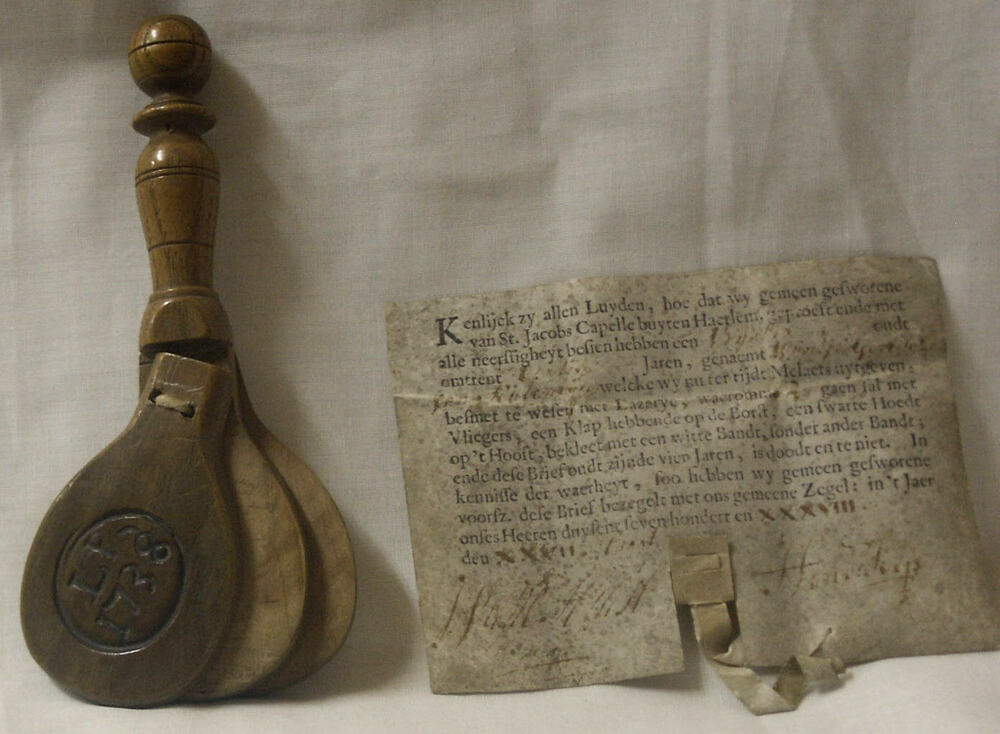 LP
1738
Kenlijck zy allen Luyden, hoe dat wy gemeen gesworene
van St. Jacobs Capelle buyten Haerlem, geproeft ende met
alle neerstigheyt besien hebben een
omtrent Jaren, genaemt oudt
welcke wy nu ter tijdt Melaets uytgeven,
besmet te wesen met Lazarye, waeromme gaen sal met
Vliegers, een Klap hebbende op de Borst, een swarte Hoedt
op't Hooft, bekleet met een witte Bandt, sonder ander Bandt;
ende dese Brief oudt zijnde vier Jaren, is doodt en te niet. In
kennisse der waerheyt, soo hebben wy gemeen gesworene
voorsz. dese Brief bezegelt met ons gemeene Zegel: in't Jaer
onses Heeren duysent seven hondert en XXXVIII
den XXVII